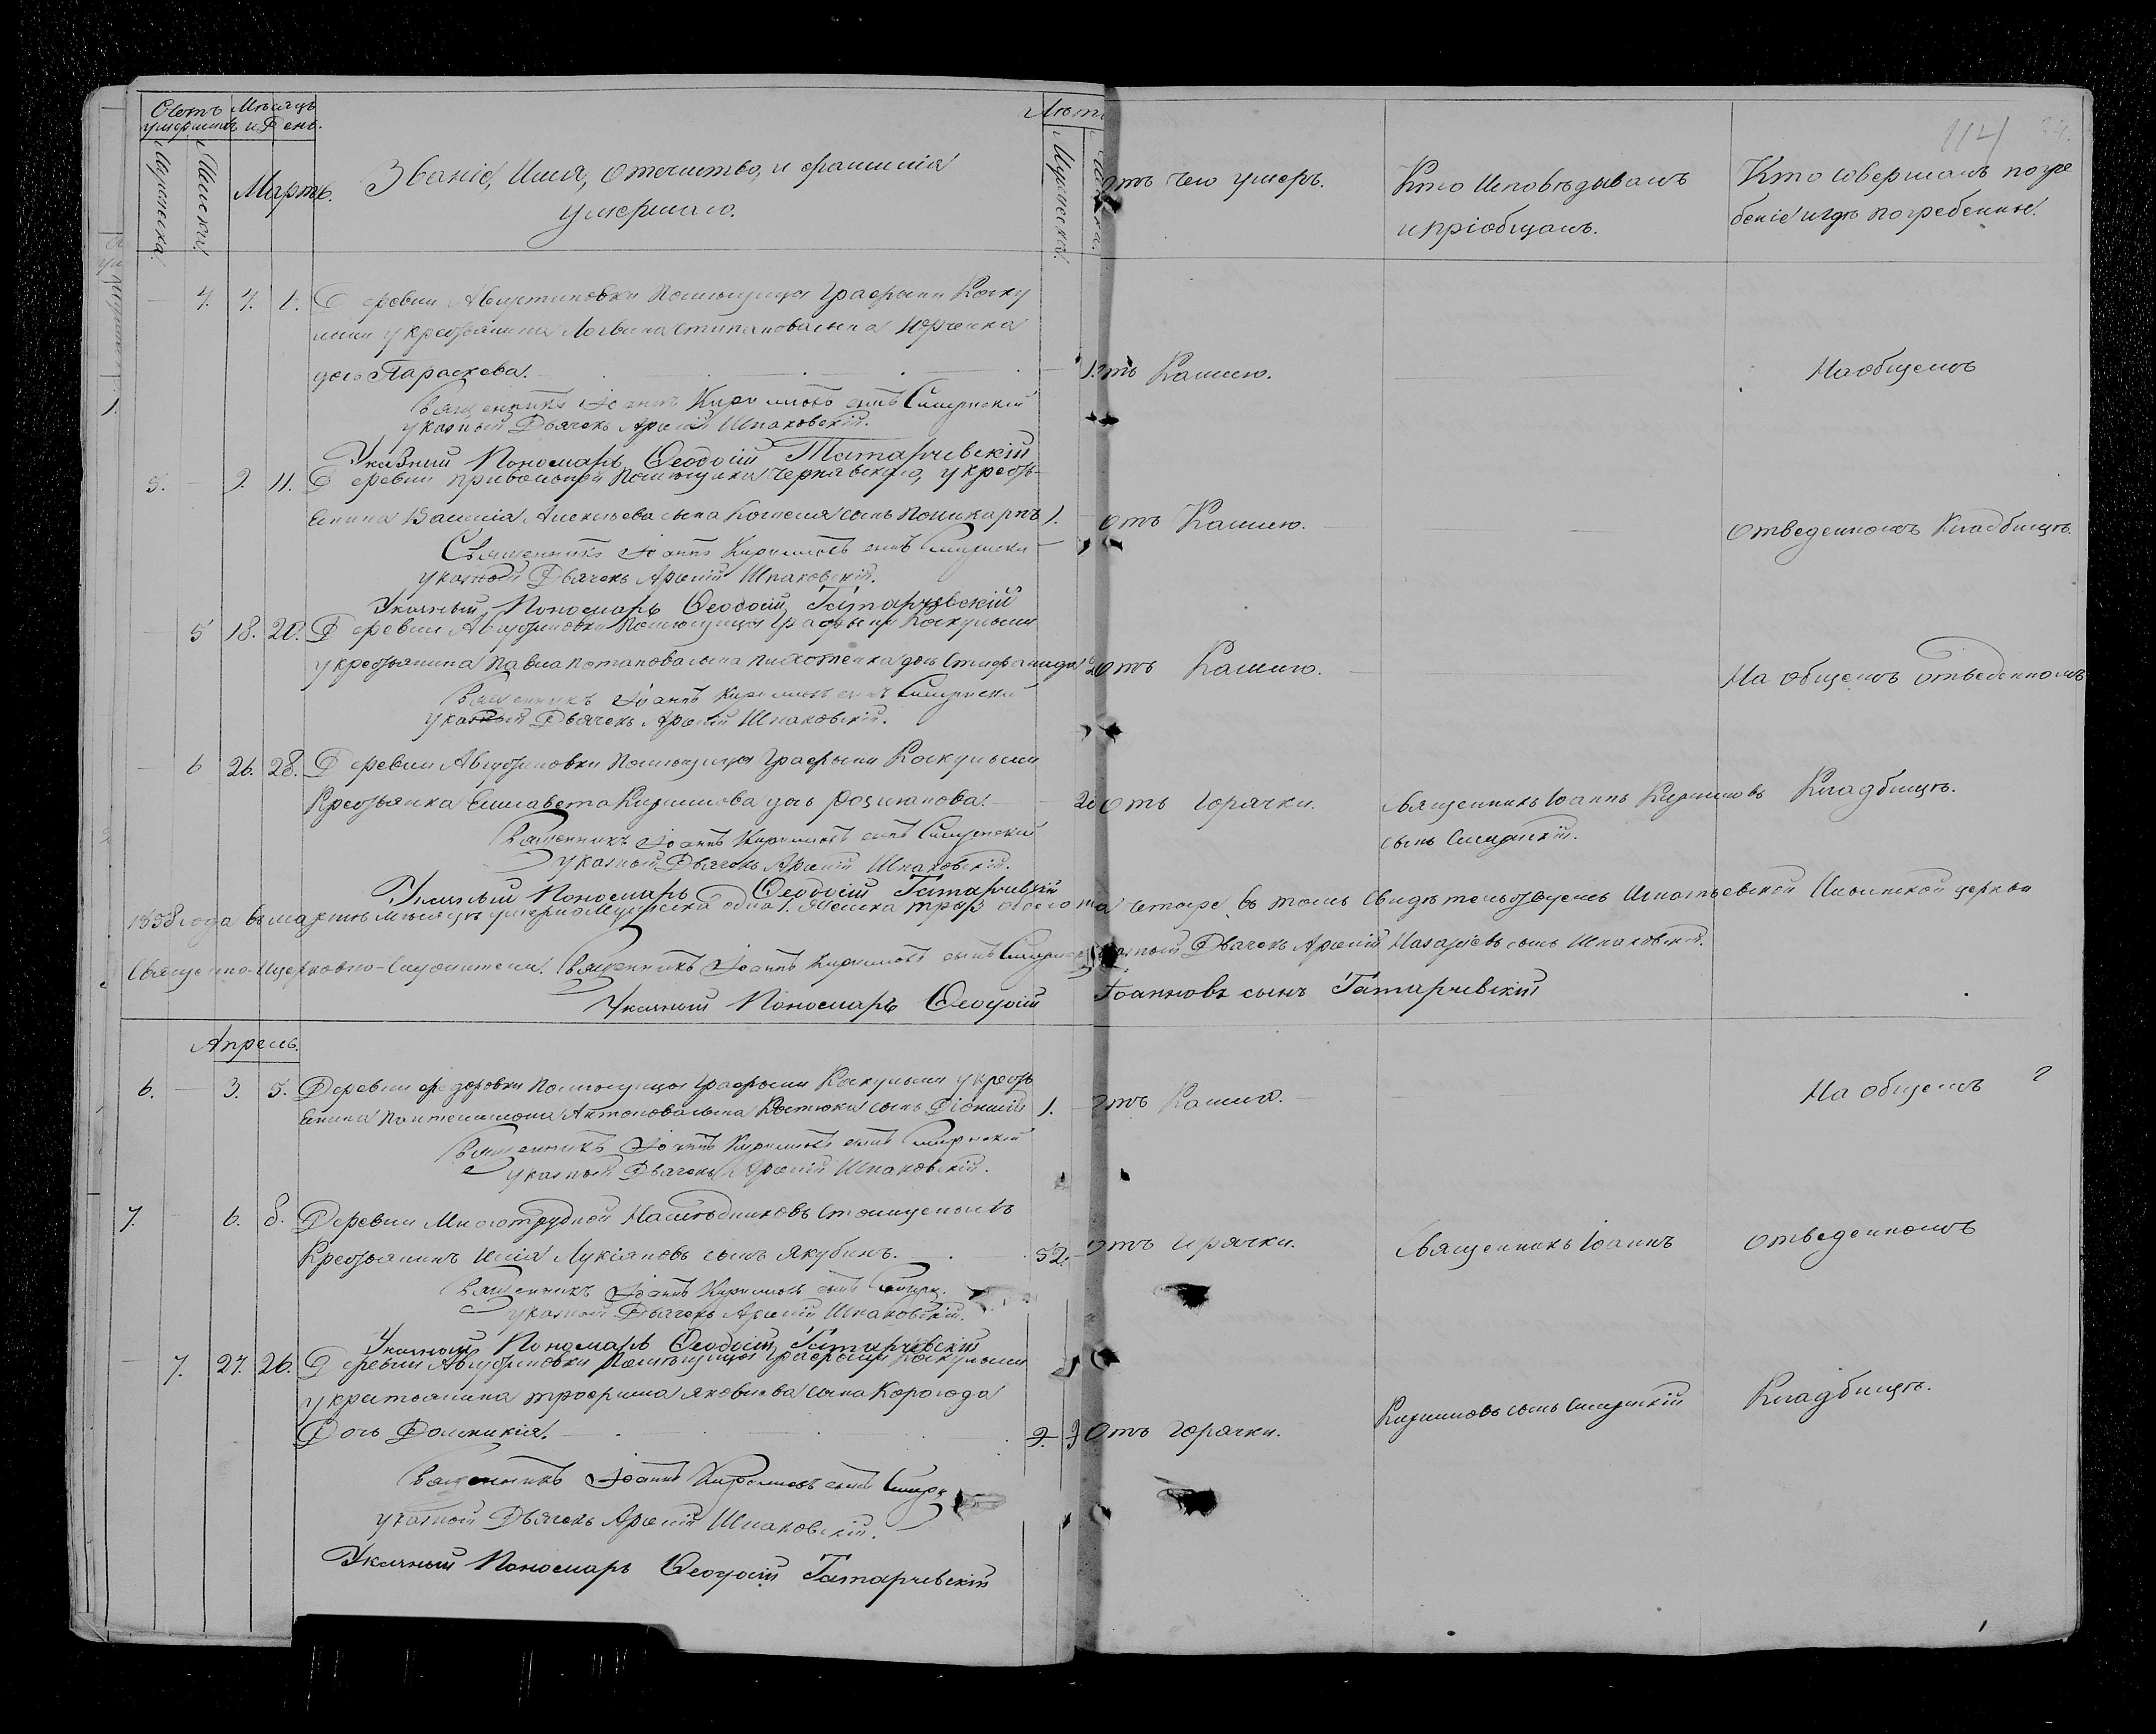 114
Счетъ умершихъ
Мѣсяцъ и День.
Лѣта
Мужеска.
Женска.
Мартъ.
Званіе, Имя, Отечество, и фамилія
умершаго.
Мужеска.
отъ чего умеръ.
Кто Исповѣдывалъ
и пріобщалъ.
Кто совершалъ погре
беніе и гдѣ погребенны.
4. 7. 1. Деревни Августиновки Помѣщицы Графини
у крестьянина сына Юрченка
дочь Параскева. 1. отъ Кашлю. На общемъ
Священникъ Іоаннъ Кириловъ сынъ
указный Дьячекъ Арсеній Шпаковскій.
Указный Пономарь Ѳеодосій Татарчевскій
5. 9. 11. Деревни Привольной Помѣщика Чернявскаго, у кресть-
янина Василія Алексѣева сына Кошеля сынъ Поликарпъ 1. отъ Кашлю. отведенномъ Кладбищѣ.
Священникъ Іоаннъ Кириловъ сынъ
указной Дьячекъ Арсеній Шпаковскій.
Указный Пономарь Ѳеодосій Татарчевскій
5 18. 20. Деревни Августиновки Помѣщицы Графини
у крестьянина Павла Потапова сына дочь Стефанида 2 отъ Кашлю. На общемъ отведенномъ
Священникъ Іоаннъ Кириловъ сынъ
указной Дьячекъ Арсеній Шпаковскій.
6 26. 28. Деревни Августиновки Помѣщицы Графини
Крестьянка Елисавета Кирилова дочь 20 отъ Горячки. Священникъ Іоаннъ Кириловъ Кладбищѣ.
сынъ
Священникъ Іоаннъ Кириловъ сынъ
указной Дьячекъ Арсеній Шпаковскій.
Указный Пономарь Ѳеодосій Татарчевскій
1858 года въ мартѣ мѣсяцѣ умерло Мужеска одна 1. Женска три 3 четыре, въ томъ Свидѣтельствуемъ Игнатьевской церкви
Священно-Церковно-Служители. Священникъ Іоаннъ Кириловъ сынъ Дьячекъ Арсеній Назаріевъ сынъ Шпаковскій.
Указный Пономарь Ѳеодосій Іоанновъ сынъ Татарчевскій
Апрель.
6. 3. 5. Деревни Федоровки Помѣщицы Графини у кресть
янина Пантелимона Антонова сына Костюка сынъ Діонисій 1. отъ Кашлю. На общемъ
Священникъ Іоаннъ Кириловъ сынъ
указной Дьячекъ Арсеній Шпаковскій.
7. 6. 8. Деревни Многотрудной Наслѣдниковъ
Крестьянинъ Илія Лукіановъ сынъ Якубинъ. 52. отъ Горячки. Священникъ Іоаннъ отведенномъ
Священникъ Іоаннъ Кириловъ сынъ
указной Дьячекъ Арсеній Шпаковскій.
Указный Пономарь Ѳеодосій Татарчевскій
7. 27. 26. Деревни Августиновки Помѣщицы Графини
у крестьянина Трофима Яковлева сына Корогода
Дочь Домникія. отъ Горячки. Кириловъ сынъ Кладбищѣ.
Священникъ Іоаннъ Кириловъ сынъ
указной Дьячекъ Арсеній Шпаковскій.
Указный Пономарь Ѳеодосій Татарчевскій